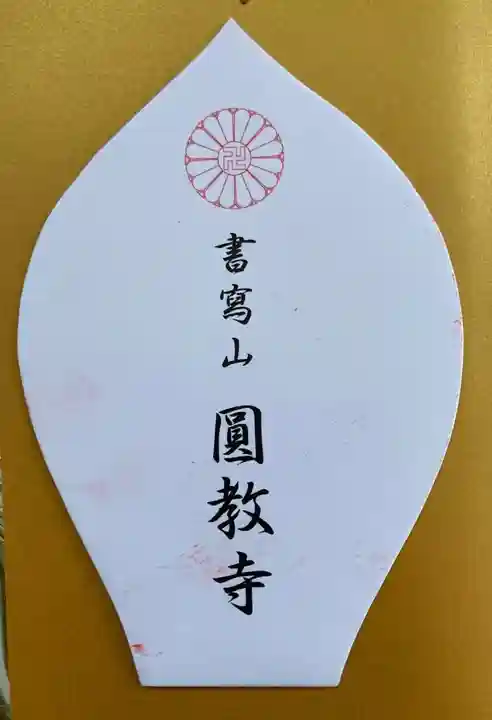 書寫山 圓教寺